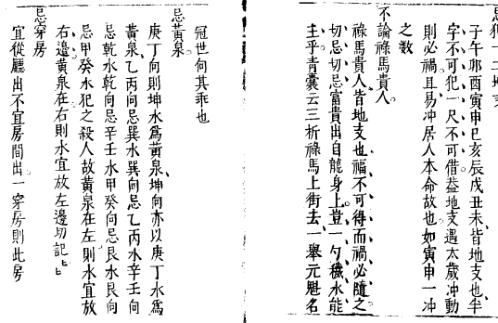 忌犯十二地支
子午卯酉寅申巳亥辰戌丑未皆地支也半
字不可犯一尺不可借葢地支遇太歲冲動
則必禍且易冲居人本命故也如寅申一冲
之数
不論祿馬貴人
祿馬貴人皆地支也福不可得而禍必隨之
切忌切忌富貴出自龍身上豈一勺穢水能
主乎青囊云三折祿馬上街去一舉元魁名
冠世何其乖也
忌黃泉
庚丁向則坤水爲黃泉坤向亦以庚丁水爲
黃泉乙丙向忌巽水巽向忌乙丙水辛壬向
忌乾水乾向忌辛壬水甲癸向忌艮水艮向
忌甲癸水犯之殺人故黃泉在左則水宜放
右邉黃泉在右則水宜放左邉切記〻
忌穿房
宜從廳出不宜房間出一穿房則此房